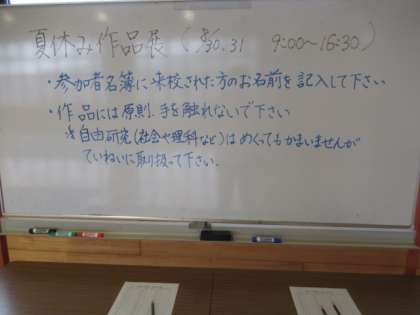 夏休み作品展 (8/30.31 9:00～16:30)
・参加者名簿に来校された方のお名前を記入して下さい
・作品には原則、手を触れないで下さい
※自由研究(社会や理科など)はめくってもかまいませんが
ていねいに取り扱って下さい。